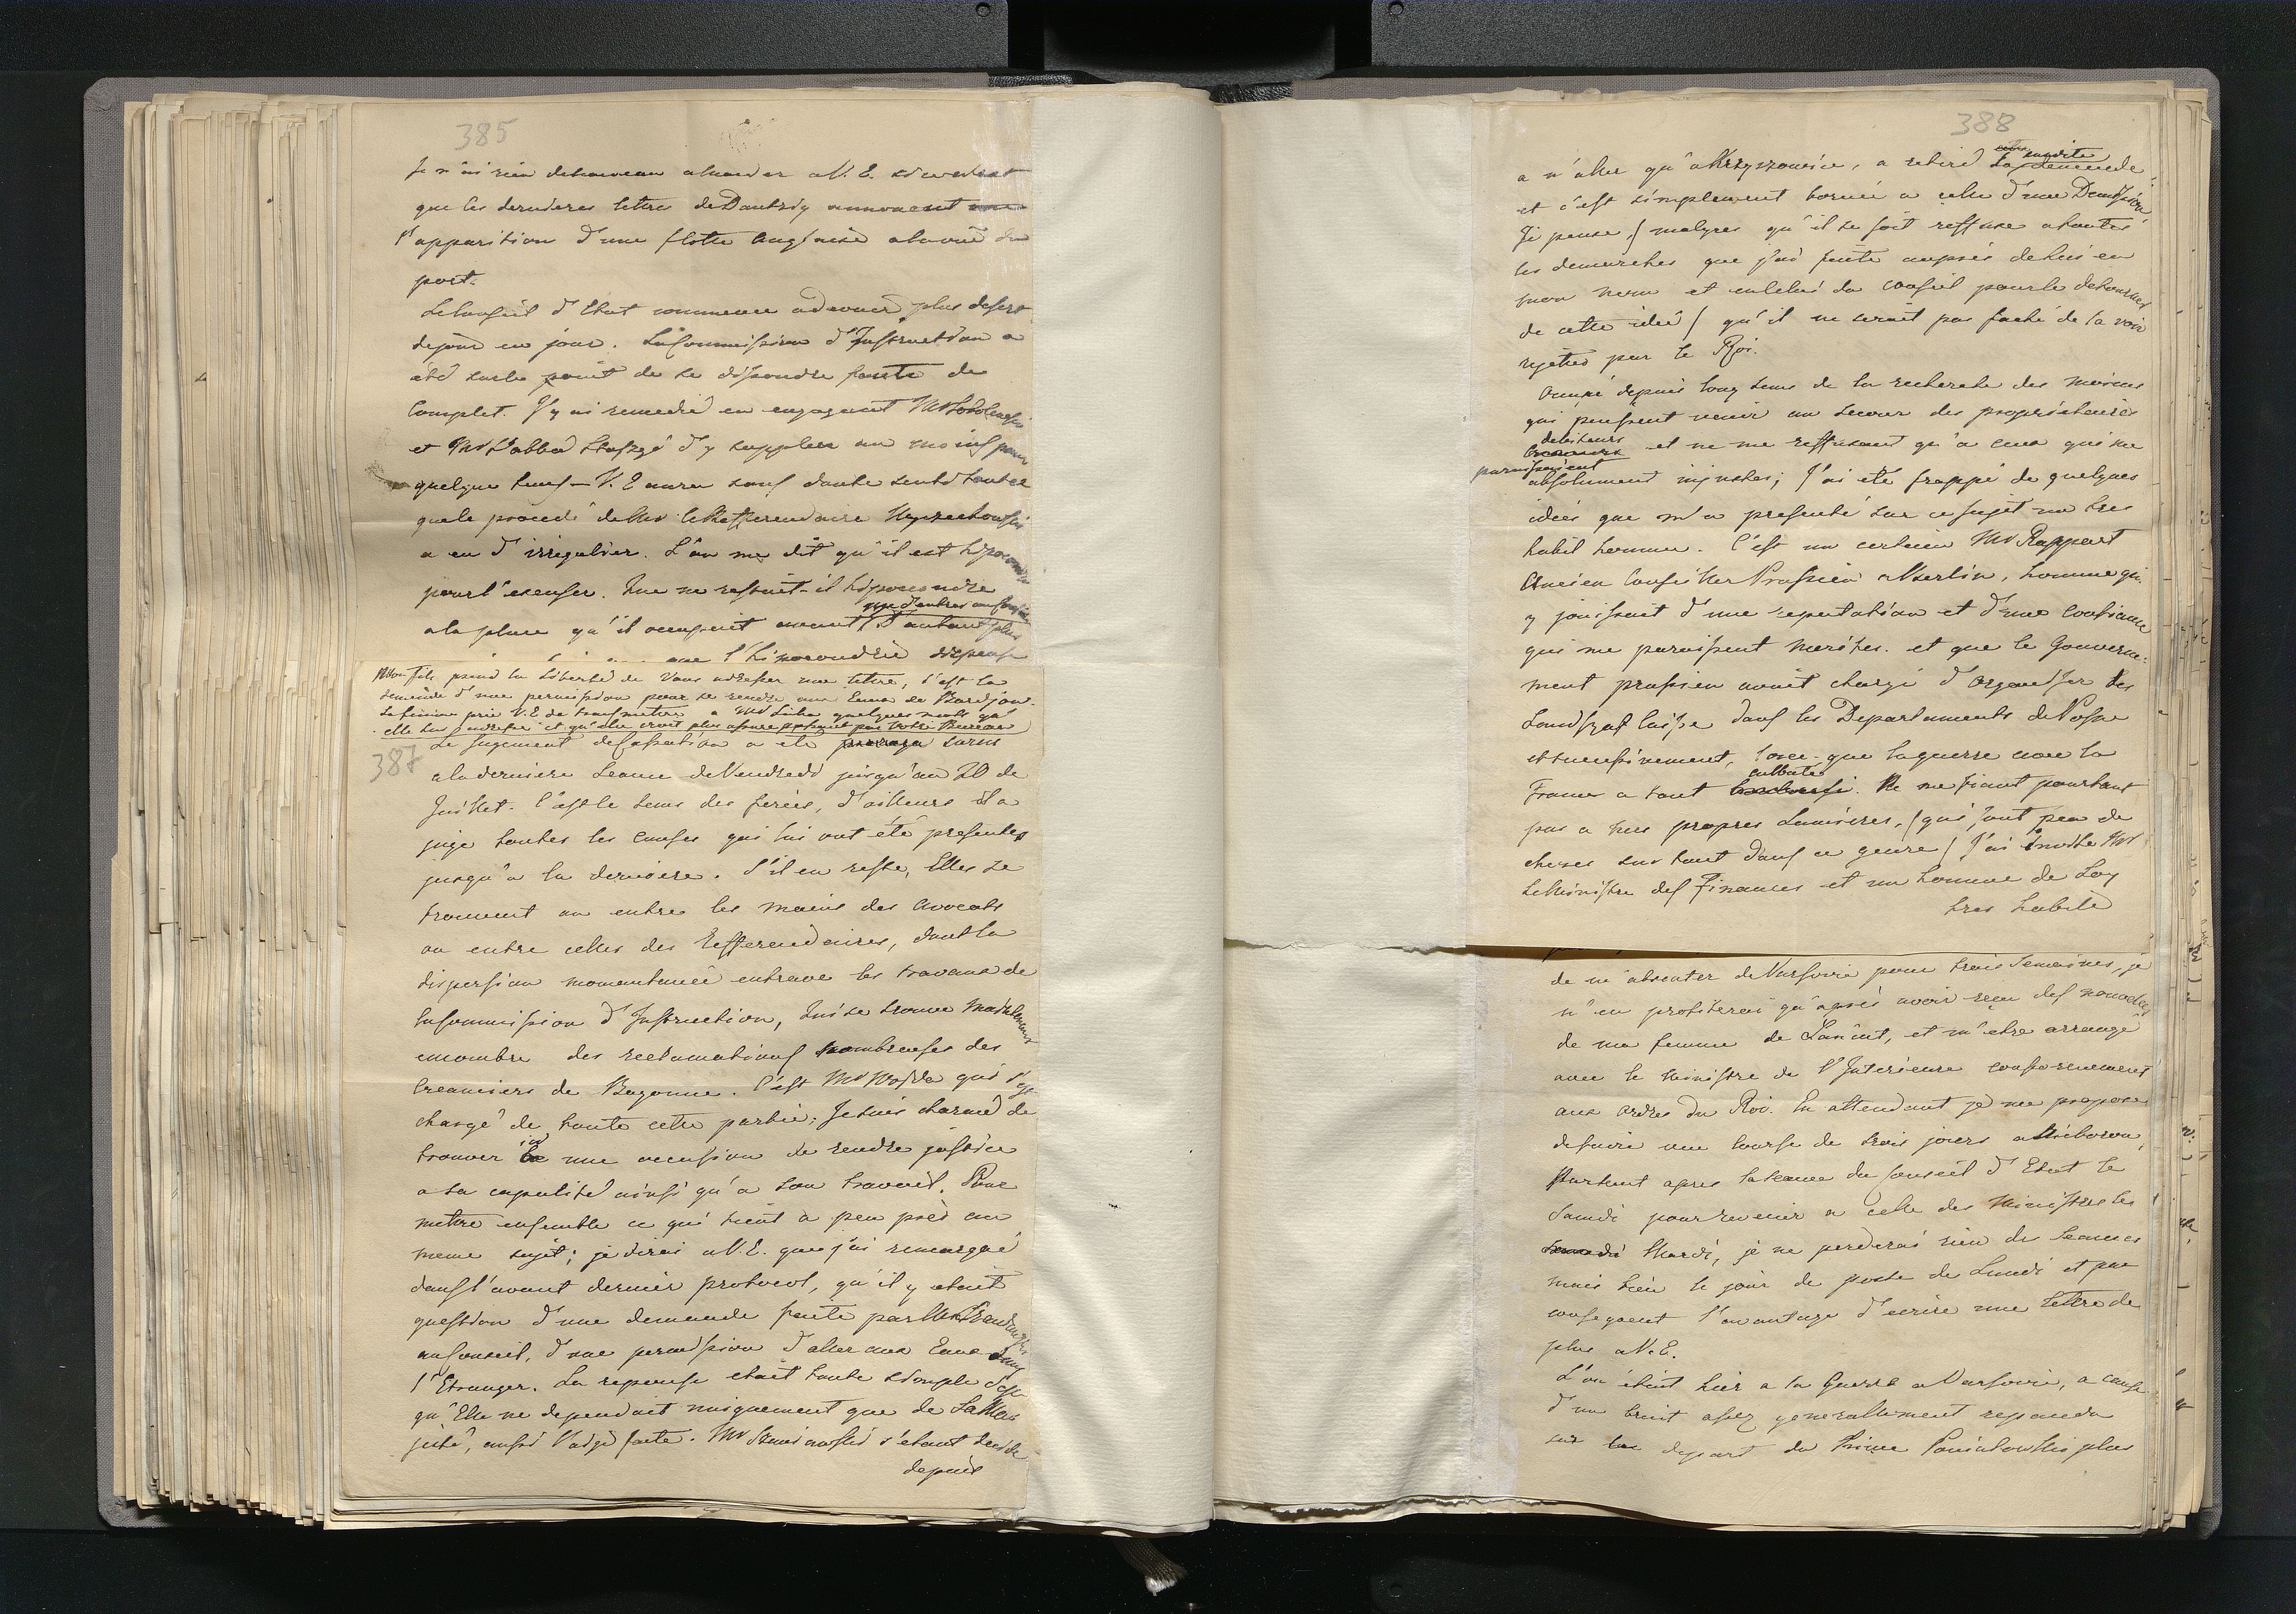 385
Je n'ai rien de nouveau a mander a V. E. si ce n'est
que les dernieres lettres de Dantzig annoncent
l'apparition d'une flotte Anglaise a la vue du
port.
Le Conseil d'Etat commence a devenir plus desert
de jour en jour. La Commission d'Instruction a
été sur le point de se dissoudre faute de
Complet. J'y ai remedié en engageant Mr
et Mr l'abbé Staszyc d'y suppléer au moins pour
quelque tems – V. E aura sans doute senti tout ce
que le procedé de Mr le Refferendaire
a eu d'irregulier. L'on me dit qu'il est hipocondre
pour l'excuser. Que ne restait-il hipocondre
a la place qu'il occupait avant,
que l'hipocondrie dispense
Mon fils prend la Liberté de Vous adresser une lettre, c'est la
demande d'une permission pour se rendre aux Eaux de Bardjow.
Sa femme prie V. E de transmettre a Mr Luba quelques mots qu'
elle lui addresse et qu'elle croit plus assuré passant par votre Bureau
387 Le Jugement de Cassation a été sursis
a la derniere Seance de Vendredi jusqu'au 20 de
Juillet. C'est le tems des feries, d'ailleurs il a
jugé toutes les causes qui lui ont été presentées
jusqu'a la derniere. S'il en reste, Elles se
trouvent ou entre les mains des Avocats
ou entre celles des Refferendaires, dont la
dispersion momentanée entrave les travaux de
la Commission d'Instruction, qui se trouve
encombré des reclamations nombreuses des
Creanciers de Bayonne. C'est Mr Woyda qui s'est
chargé de toute cette partie. Je suis charmé de
trouver ici une occasion de rendre justice
a sa capacité ainsi qu'a son travail. Pour
mettre ensemble ce qui tient à peu près au
meme sujet; je dirai a V. E. que j'ai remarqué
dans l'avant dernier protocol, qu'il y etait
question d'une demande faite par Mr
au Conseil, d'une permission d'aller aux Eaux dans
l'Etranger. La reponse etait toute simple c'est
qu'Elle ne dependait uniquement que de Sa Ma
jesté, aussi l'a-t-je faite. Mr s'etant decidé
depuis
388
a n'aller qu'a Krzyszowice, a retiré susdite demande
et s'est simplement borné a celle d'une Demission.
Je pense / malgres qu'il se soit reffusé a toutes
les demarches que j'ai faites auprès de lui en
mon nom et en celui du Conseil pour le detourner
de cette idée / qu'il ne serait pas faché de la voir
rejettée par le Roi.
Occupé depuis long tems de la recherche des moiens
qui peussent venir au secour des proprietaires
debiteurs et ne me reffusant qu'a ceux qui me
paraissaient
absolument injustes; j'ai été frappé de quelques
idées que m'a presenté sur ce sujet un tres
habil homme. C'est un certain Mr Rappart
Ancien Conseiller Prussien a Berlin, homme qui
y jouissait d'une reputation et d'une confiance
qui me paraissent merités. et que le Gouverne-
ment prussien avait chargé d'organiser les
Landschaft Caisse dans les Departements de Posne
et successivement, lorce que la guerre avec la
France a tout culbuté. Ne me fiant pourtant
pas a mes propres Lumieres, (qui sont peu de
choses sur tout dans ce genre) j'ai invité Mr
Le Ministre des Finances et un homme de Loy
tres habile
de m'absenter de Varsovie pour trois Semaines, je
n'en profiterai qu'après avoir reçu des nouvelles
de ma femme de Lancut, et m'etre arrangé
avec le Ministre de l'Interieure conformement
aux ordres du Roi. En attendant je me propose
de faire une Course de trois jours a Nieborow,
Partant apres la Seance du Conseil d'Etat le
Samdi pour revenir a celle des Ministres les
Mardi, je ne perderai rien des Seances
mais bien le jour de poste de Lundi et par
consequent l'avantage d'ecrire une Lettre de
plus a V. E.
L'on etait hier a la Guerre a Varsovie, a cause
d'un bruit assez generallement repandu
sur le depart du Prince Poniatowski plus